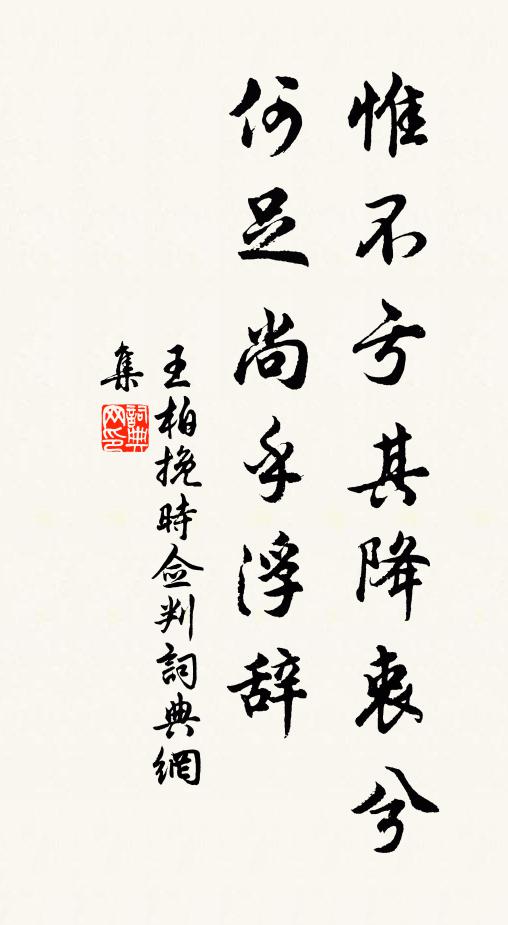 惟不亏其降衷兮
何足尚乎浮辞
王柏挽時佥判詞典網
集
詞典
网印